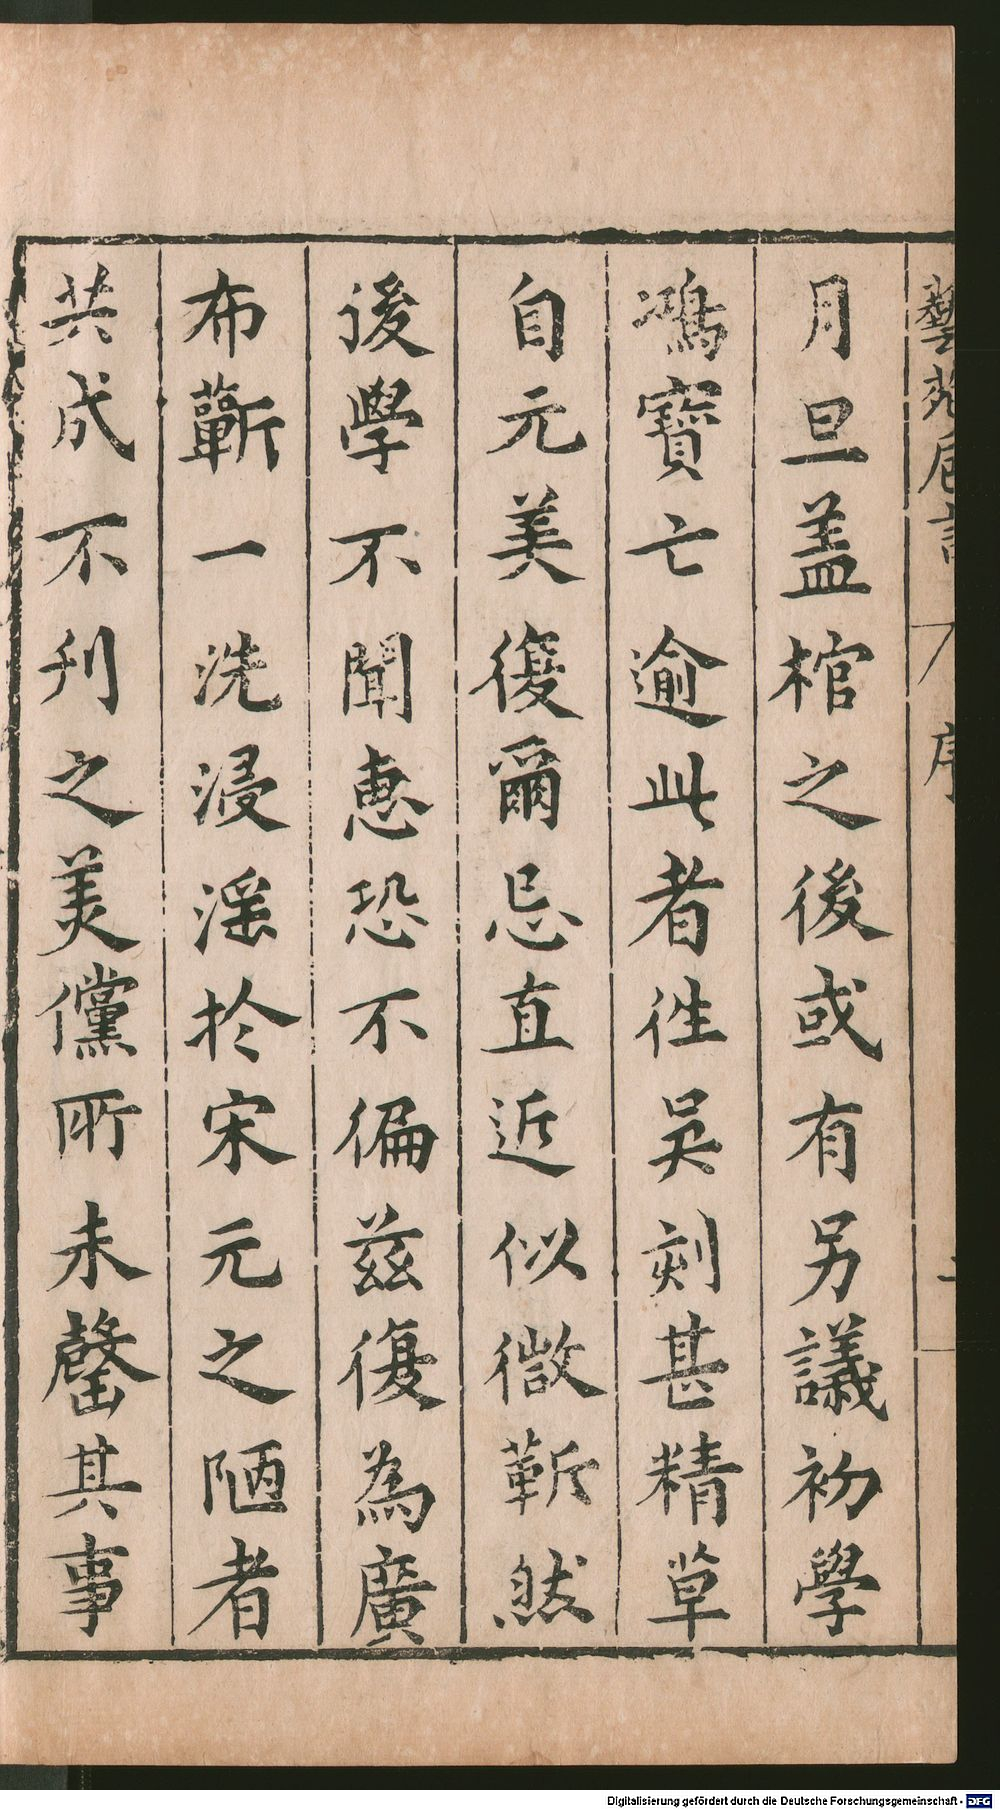 藝苑巵言 序 二
月旦盖棺之後或有另議初學
鴻寶亡逾此者徃吳刻甚精草
自元美復爾忌直近似微蘄然
後學不聞悳恐不徧兹復為廣
布蘄一洗浸淫於宋元之陋者
共成不刋之美儻所未罄其事
Digitalisierung gefördert durch die Deutsche Forschungsgemeinschaft - DFG